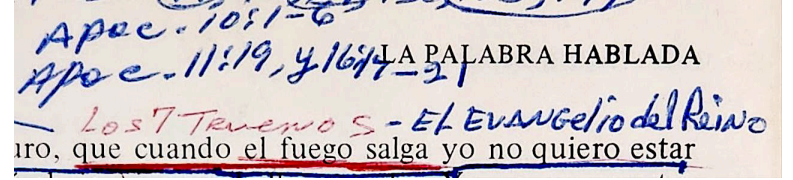 Apoc. 10:1-6
Apoc. 11:19, y 16:17-21
LA PALABRA HABLADA
Los 7 Truenos - El Evangelio del Reino
uro, que cuando el fuego salga yo no quiero estar